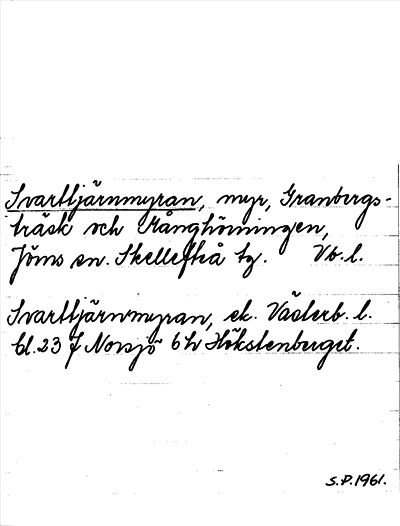 Svarttjärnmyran, myr, Granbergs-
träsk och Långhörningen,
Jörns sn. Skellefteå tg. Vb. l.
Svarttjärnmyran, ek. Västerb. l.
bl. 23 f Norsjö 6 h Hökstenberget.
S.P. 1961.